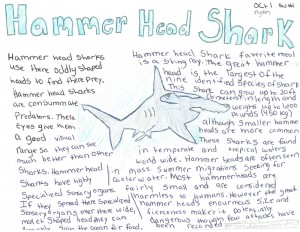 Hammer Head Shark
Oct 1
Hammer head Sharks
use there oddly shaped
heads to find there Prey.
Hammer head Sharks
are consummate
Predators. These
Eyes give them
a good visual
range so they can see
much better than other
Sharks. Hammer head
Sharks have highly
Specialized Sensory organs.
If they spread there Specialized
Sensory organs over there wide,
mallet Shaped head they can
the ocean for food.
Hammer head Shark favorite meal
is a Sting ray. The Great hammer
head is the largest of the
nine identified Species of Shark
This Shark can grow up to 20ft
(6.1 meters) in length and
weighs up to 1,000
Pounds (450 kg)
although Smaller hammer
heads are more common
These Sharks are found
in temperate and tropical waters
world wide. Hammer heads are often seen
in mass Summer migrations Seeking for
cooler water. Most hammerheads are
fairly Small and are considered
harmless to humans. However the great
hammer head's enormous Size and
fierceness makes it potentially
dangerous though few attacks have
been recorded